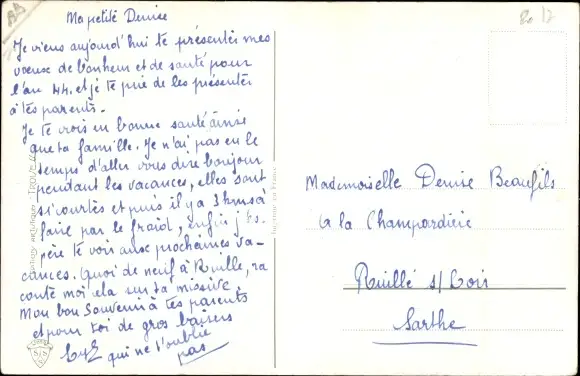 Ma petite Denise
Je viens aujourd'hui te présenter mes
voeux de bonheur et de santé pour
l'an 44. et je te prie de les présenter
à tes parents.
Je te crois en bonne santé ainsi
que ta famille. Je n'ai pas eu le
temps d'aller vous dire bonjour
pendant les vacances, elles sont
si courtes et puis il y a 3 kms à
faire par le froid, enfin j'es-
père te voir aux prochaines va-
cances. Quoi de neuf à Ruillé, ra
conte moi cela sur ta missive.
Mon bon Souvenir à tes parents
et pour toi de gros baisers
qui ne t'oublie
pas
Mademoiselle Denise Beaufils
à la Champardière
Ruillé s/ Loir
Sarthe